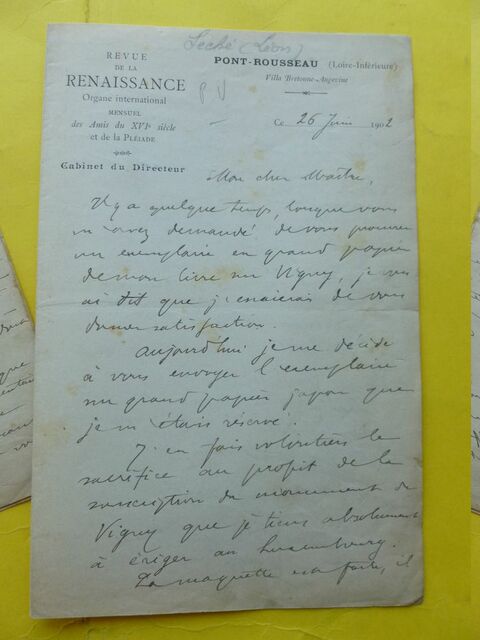 Séché (Léon)
REVUE
DE LA
RENAISSANCE
Organe international
MENSUEL
des Amis du XVIe siècle
et de la PLÉIADE
Cabinet du Directeur
PONT-ROUSSEAU (Loire-Inférieure)
Villa Bretonne-Angevine
P V
Ce 26 Juin 1902
Mon cher Maître,
Il y a quelque temps, lorsque vous
m'avez demandé de vous procurer
un exemplaire en grand papier
de mon livre sur Vigny, je vous
ai dit que j'essaierais de vous
donner satisfaction.
Aujourd'hui je me décide
à vous envoyer l'exemplaire
sur grand papier japon que
je m'étais réservé.
J'en fais volontiers le
sacrifice au profit de la
souscription du monument de
Vigny que je tiens absolument
à ériger au Luxembourg.
La maquette est faite, il